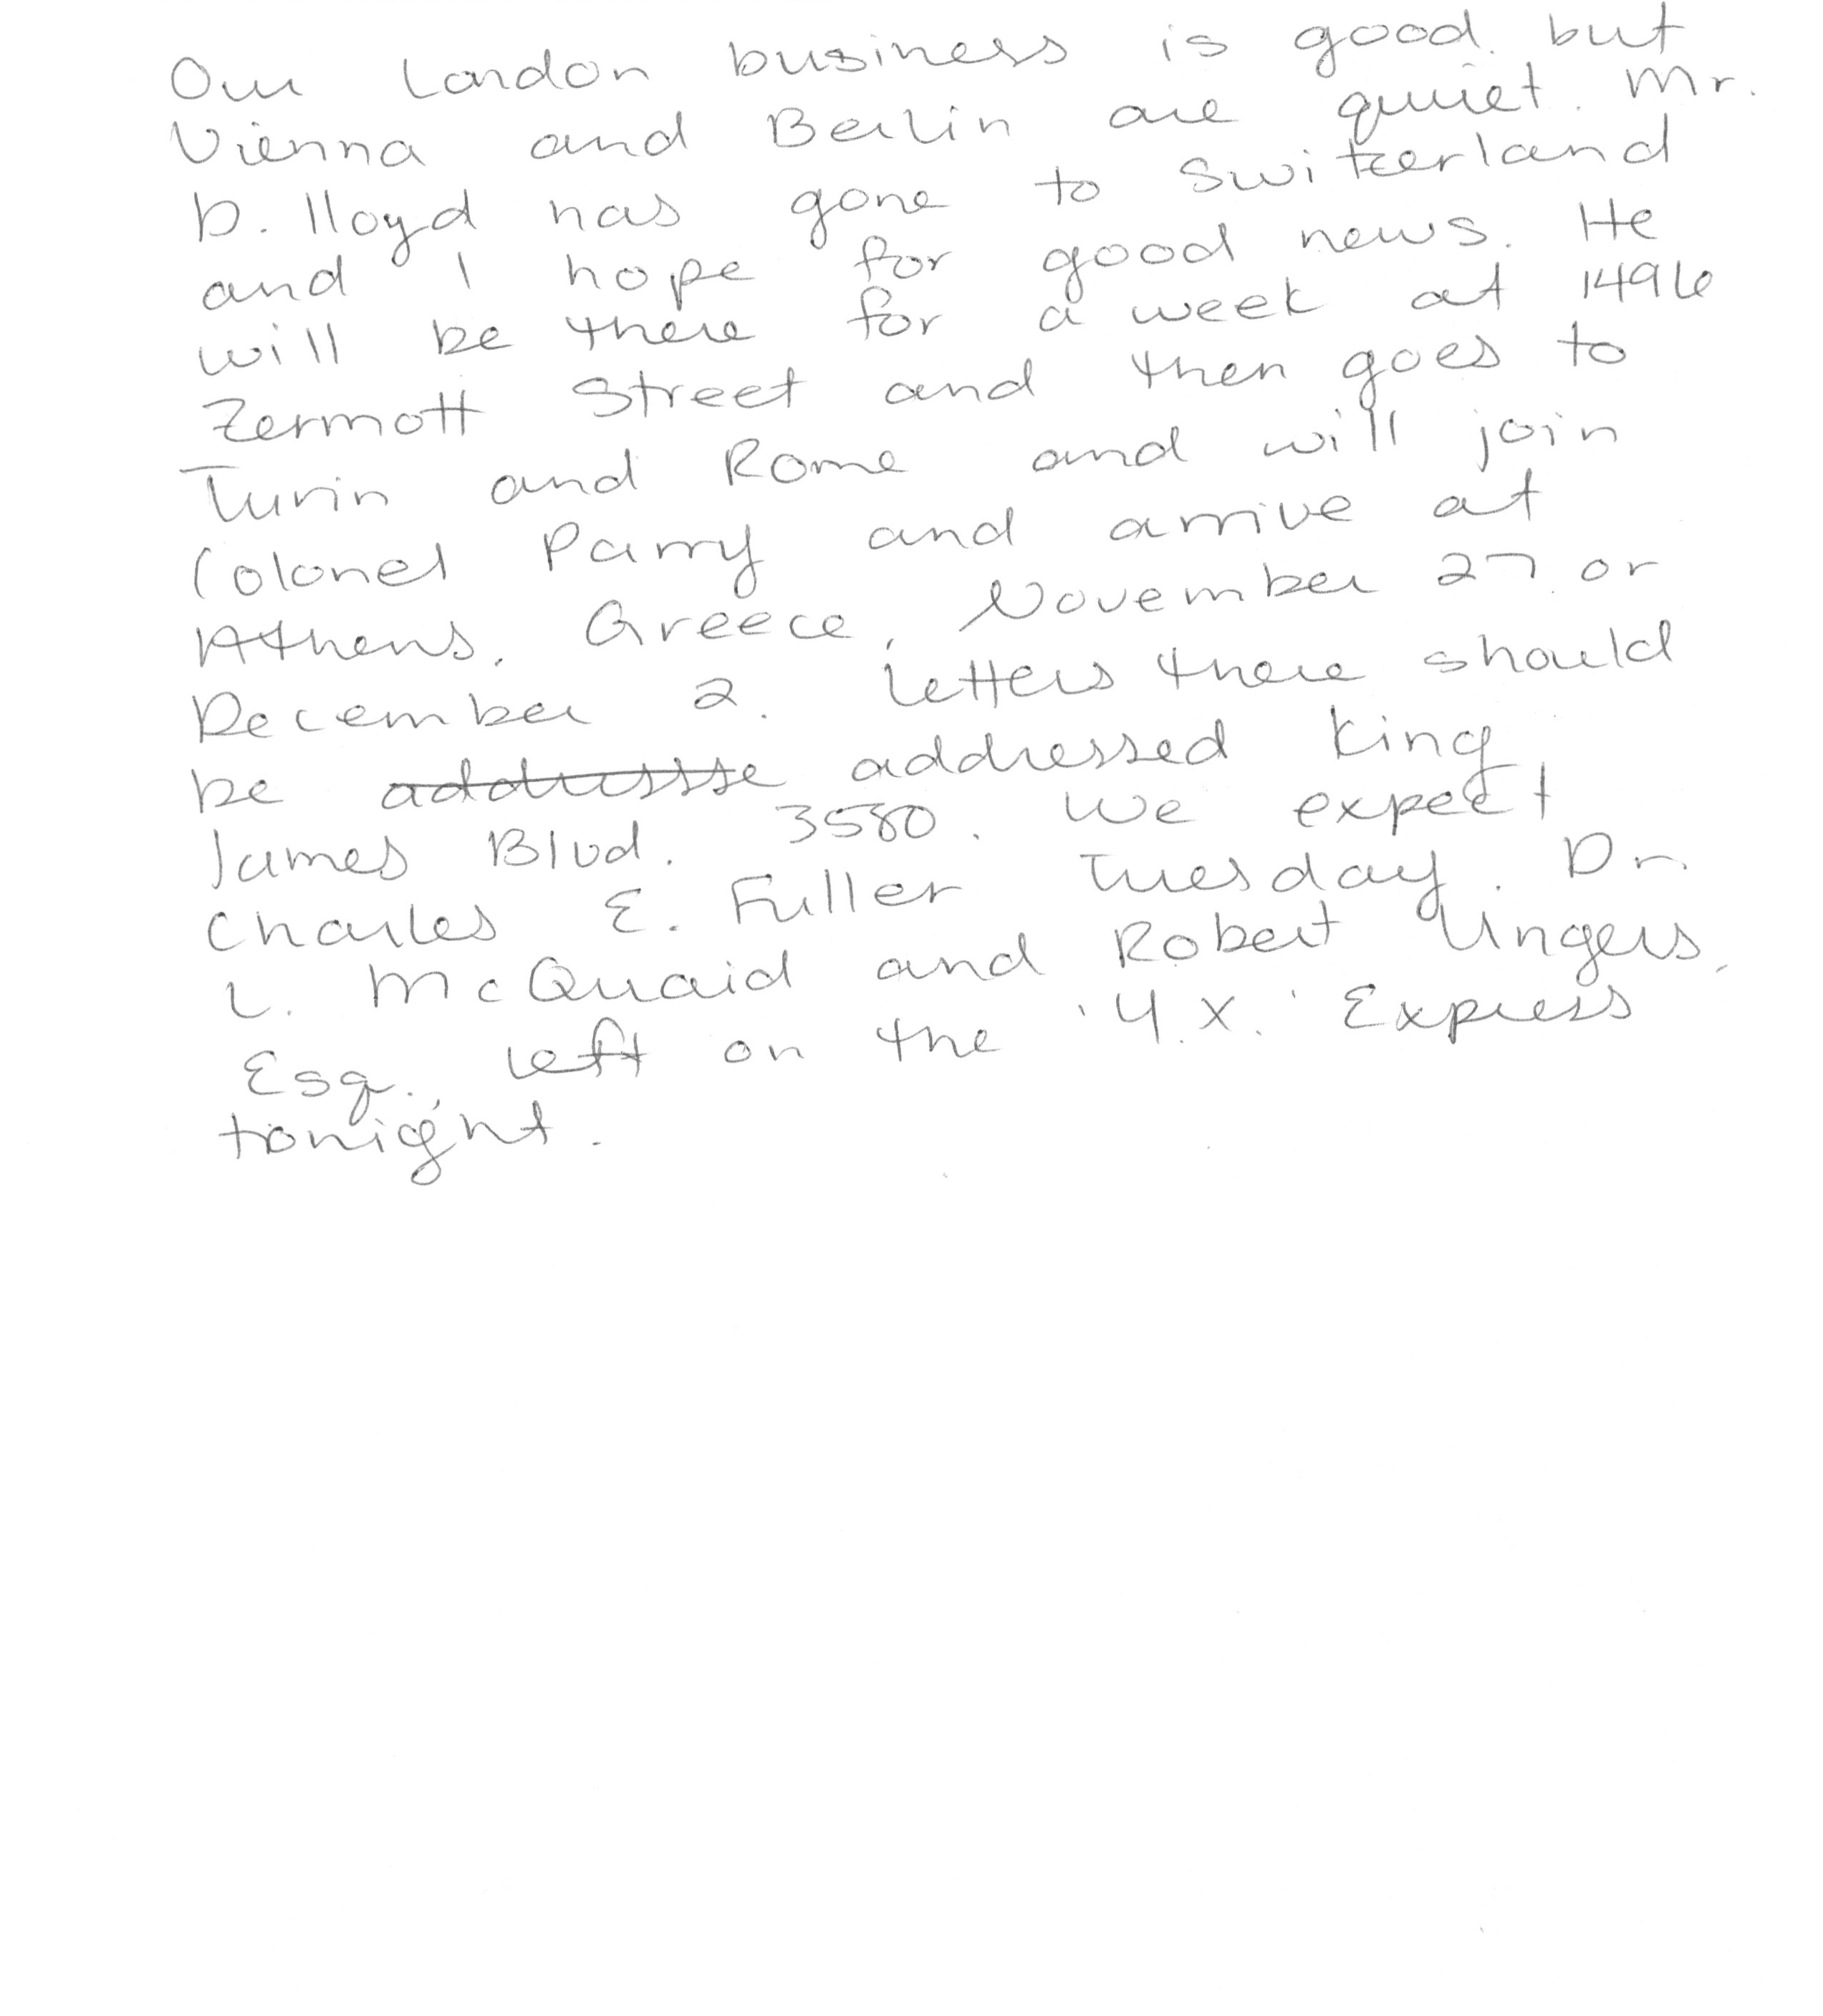 Our London business is good, but
Vienna and Berlin are quiet. Mr.
D. Lloyd has gone to Switzerland
and I hope for good news. He
will be there for a week at 1496
Zermott Street and then goes to
Turin and Rome and will join
Colonel Parry and arrive at
Athens, Greece, November 27 or
December 2. Letters there should
be addressse addressed King
James Blvd. 3580. We expect
Charles E. Fuller Tuesday. Dr.
L. McQuaid and Robert Ungers,
Esq., left on the 'Y.X.' Express
tonight.